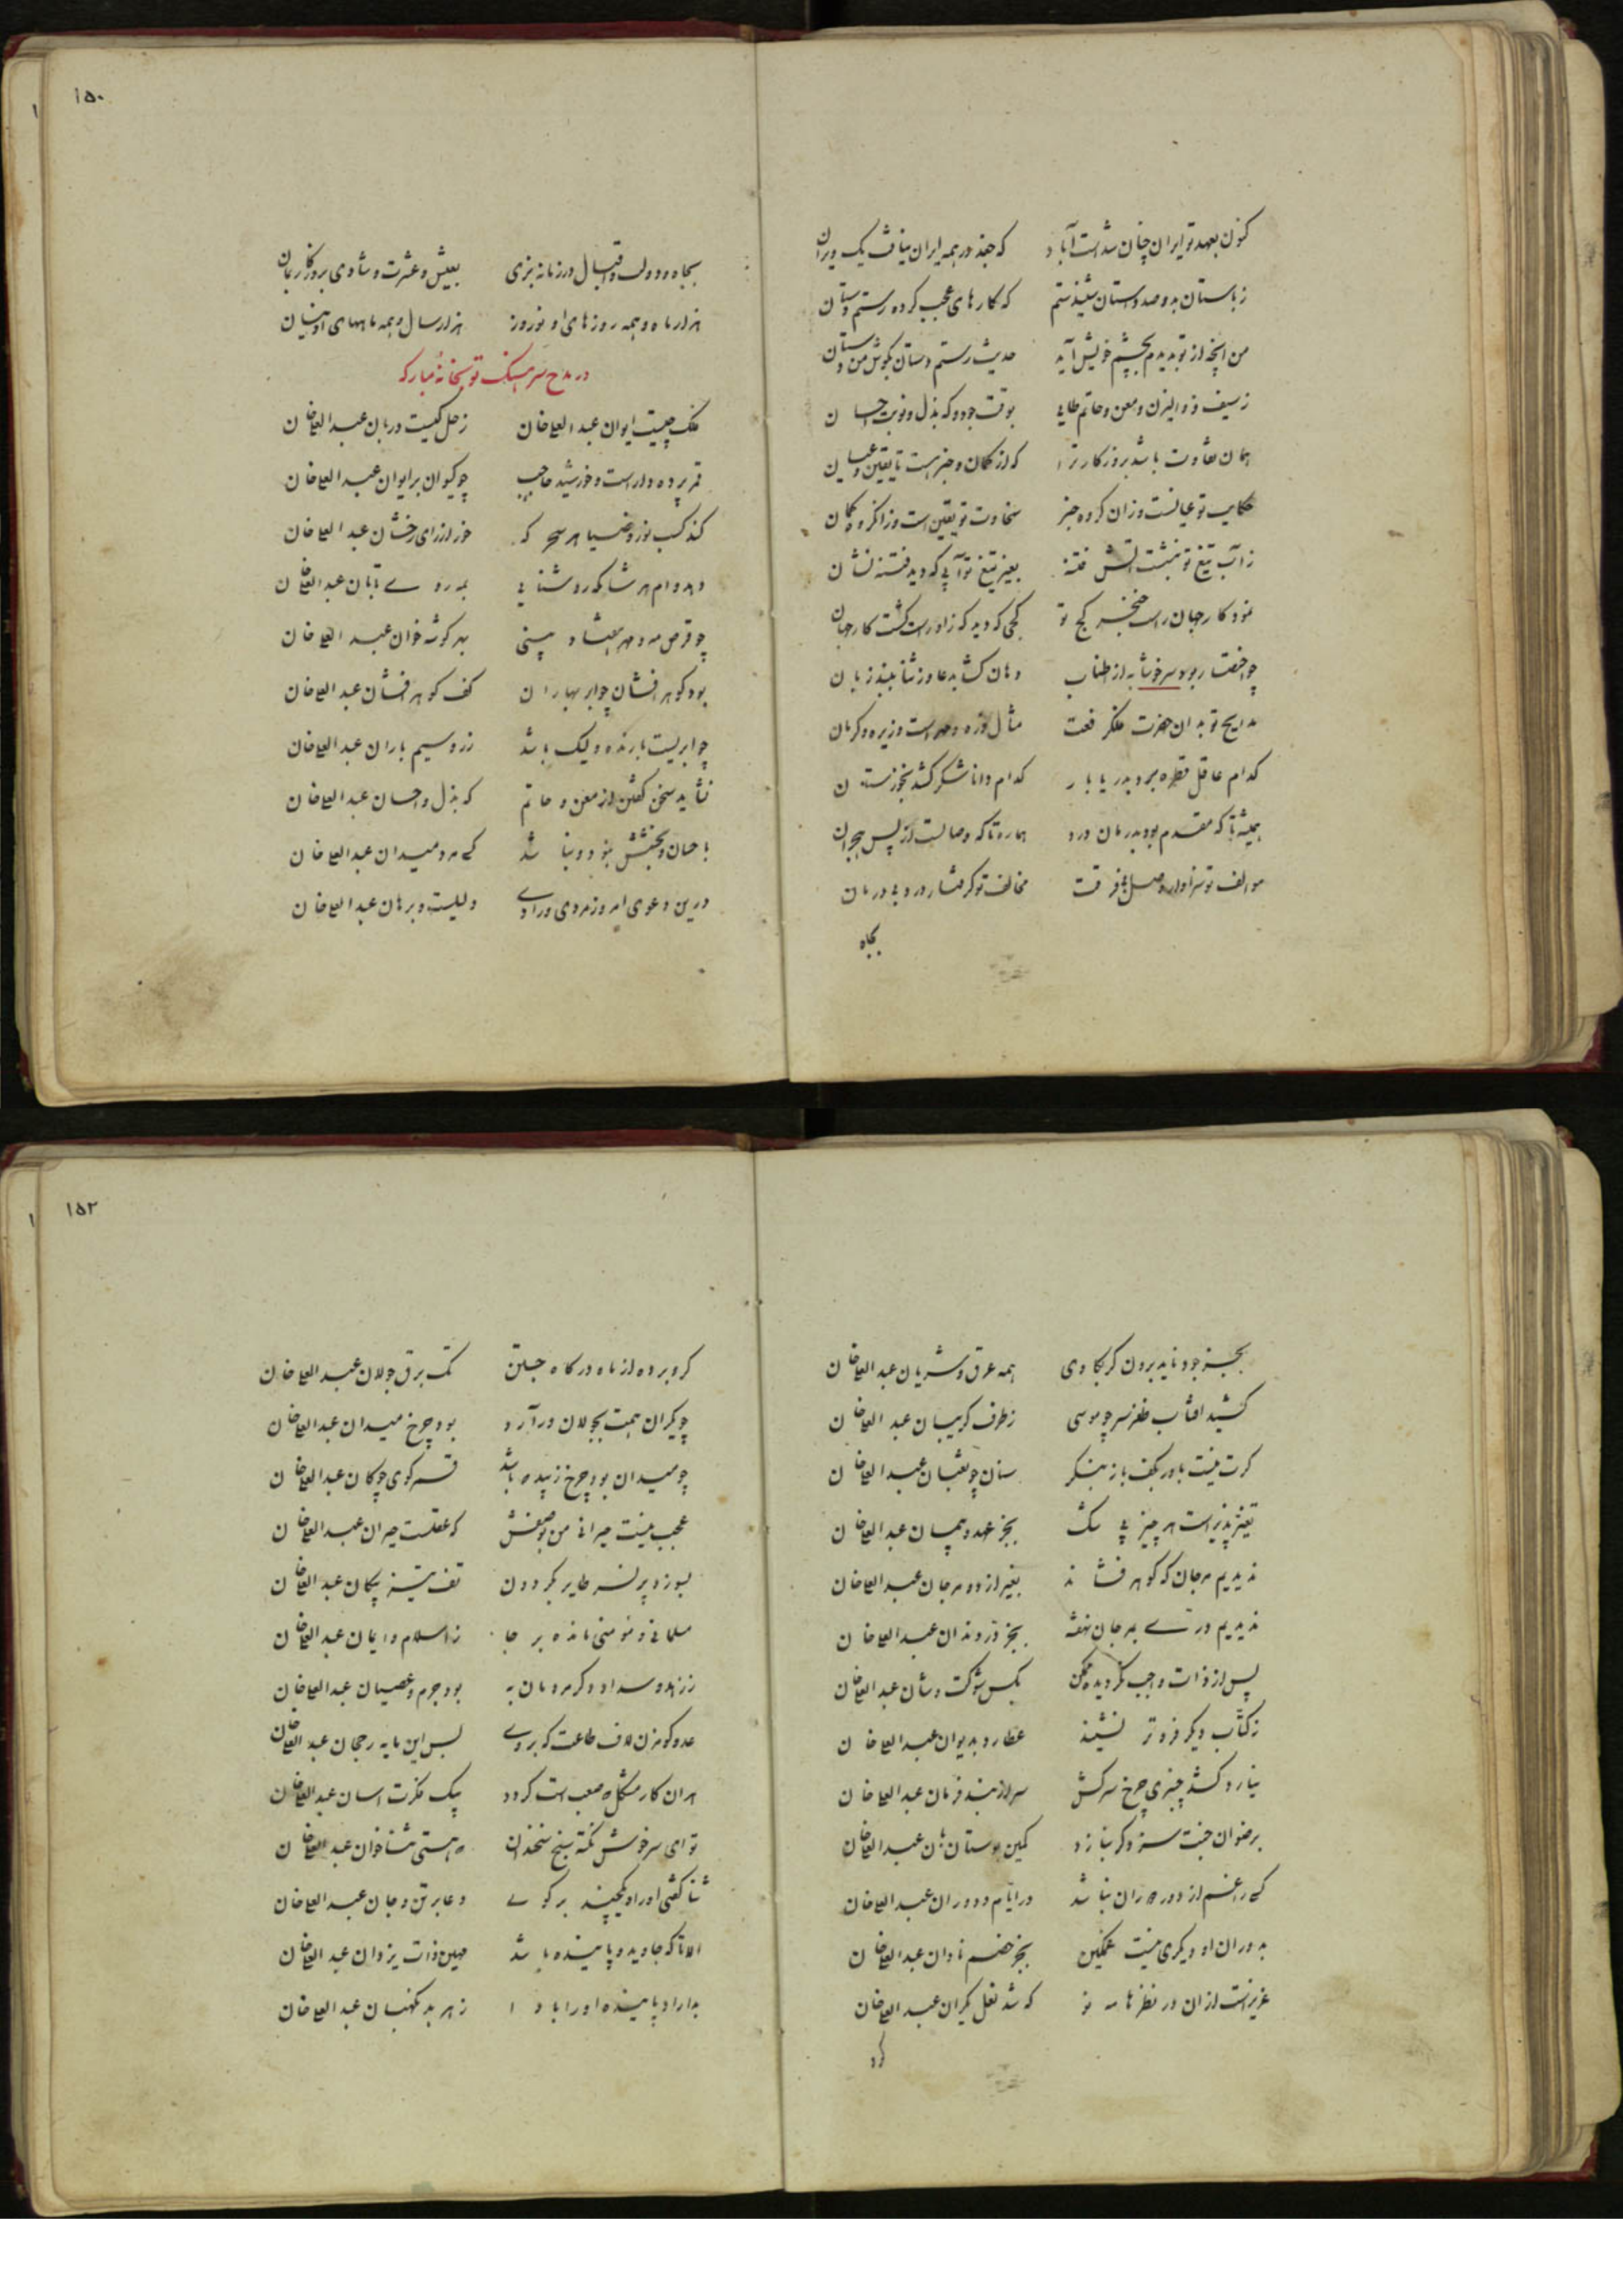 کنون بعهد تو ایران چنان شدست آباد که جغد در همه ایران نیافت یک ویران
ز باستان بدو صد داستان شنیدستم که کارهای عجب کرده رستم دستان
من آنچه از تو بدیدم بچشم خویش آید حدیث رستم دستان بگوش من دستان
ز سیف ذوالیزن و معن و حاتم طایی بوقت جود و که بذل و نوبت احسان
همان تفاوت باشد بروزکار ترا که از کمان و خبر هست تا یقین و عیان
حکایت تو عیانست وزان کروه خبر سخاوت تو یقین است وزانکروه کمان
ز آب تیغ تو بنشست آتش فتنه بغیر تیغ تو آبی که دید فتنه نشان
نمود کار جهان راست خنجر کج تو کجی که دید کزاو راست کشت کار جهان
چو اختصار بود سرخوشا به از اطناب دهان کشا بدعا وز ثنا ببند زبان
مدایح تو بدان حضرت فلک رفعت مثال لوزه و مصر است و زیره و کرمان
کدام عاقل قطره برد بدریا بار کدام دانا شکر کشد بخوزستان
همیشه تا که مقدم بود بدرمان درد هماره تا که وصالست از پس هجران
موالف تو سزاوار وصل بی فرقت مخالف تو کرفتار درد بی درمان
بجاه
۱۵۰
بجاه و دولت و اقبال در زمانه بزی بعیش و عشرت و شادی بروزکار بمان
هزار ماه و همه روزهای او نوروز هزار سال و همه ماههای او نیسان
در مدح سرهنک توپخانه مبارکه
فلک چیست ایوان عبدالعلی خان زحل کیست دربان عبدالعلی خان
قمر پرده دار است و خورشید حاجب چو کیوان بر ایوان عبدالعلی خان
کند کسب نور و ضیا هر سحر که خور از رای رخشان عبدالعلی خان
دهد وام هر شامکه روشنایی بمه روی تابان عبدالعلی خان
چو قرص مه و مهر هفتاد بینی بهر کوشه خوان عبدالعلی خان
بود کوهر افشان چو ابر بهاران کف کوهر افشان عبدالعلی خان
چو ابریست بارنده ولیک باشد زر و سیم باران عبدالعلی خان
نشاید سخن کفتن از معن و حاتم که بذل و احسان عبدالعلی خان
باحسان و بخشش نبود و نباشد کسی مرد میدان عبدالعلی خان
درین دعوی امروز مردی و رادی دلیلست و برهان عبدالعلی خان
بجز جود ناید برون کر بکاوی همه عرق و شریان عبدالعلی خان
کشید آفتاب ظفر سر چو موسی ز طرف کریبان عبدالعلی خان
کرت نیست باور بکف باز بنکر سنان چو ثعبان عبدالعلی خان
تغیر پذیر است هر چیز بی شک بجز عهد و پیمان عبدالعلی خان
ندیدیم مرجان که کوهر فشاند بغیر از دو مرجان عبدالعلی خان
ندیدیم دری بمرجان نهفته بجز در دندان عبدالعلی خان
پس از ذات واجب نکردیده ممکن بکس شوکت و شان عبدالعلی خان
ز کتاب دیکر فروتر نشیند عطارد بدیوان عبدالعلی خان
نیارد کشد چنبری چرخ سرکش سر از بند فرمان عبدالعلی خان
برضوان جنت سزد کر بنازد کمین بوستان بان عبدالعلی خان
کسی را غم از دور دوران نباشد در ایام و دوران عبدالعلی خان
بدوران او دیکری نیست غمکین بجز خصم نادان عبدالعلی خان
عزیزست ازان در نظرها مه نو که شد نعل یکران عبدالعلی خان
کرو
۱۵۲
کرو برده از ماه در کاه جستن تک برق جولان عبدالعلی خان
چو یکران همت بجولان درآرد بود چرخ میدان عبدالعلی خان
چو میدان بود چرخ زیبنده باشد قمر کوی چوکان عبدالعلی خان
عجب نیست حیرانی من بوصفش که عقلست حیران عبدالعلی خان
بسوزد پر نسر طایر بکردون تف تیر پیکان عبدالعلی خان
مسلمانی و مومنی مانده بر جا ز اسلام و ایمان عبدالعلی خان
ز زهد و سداد دکر مردمان به بود جرم و عصیان عبدالعلی خان
عدو کو مزن لاف طاعت که بر وی بس این مایه رجحان عبدالعلی خان
هران کار مشکل که صعب است کردد بیک فکرت آسان عبدالعلی خان
تو ای سرخوش نکته سنج سخندان که هستی ثنا خوان عبدالعلی خان
ثنا کفتی او را و یکچند برکوی دعا بر تن و جان عبدالعلی خان
الا تا که جاوید و پاینده باشد مهین ذات یزدان عبدالعلی خان
بداراد پاینده او را بادا ز هر بد نکهبان عبدالعلی خان